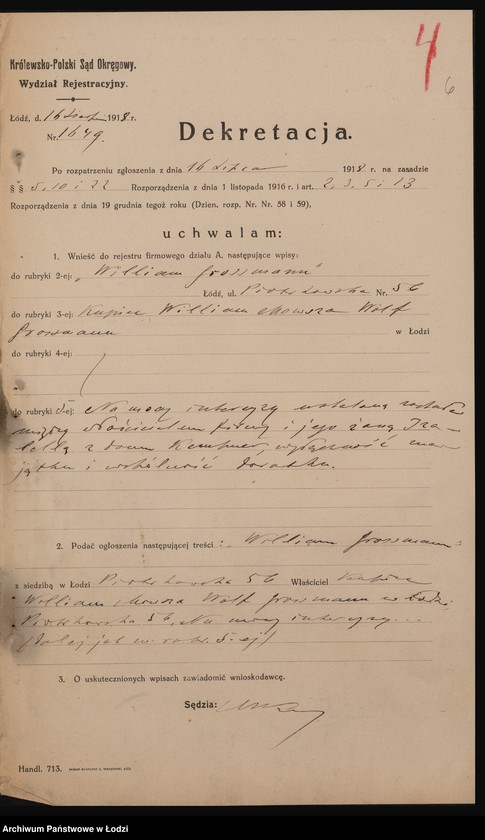 4
6
Królewsko-Polski Sąd Okręgowy.
Wydział Rejestracyjny.
Łódź, d. 16 1918 r.
Nr. 1649.
Dekretacja.
Po rozpatrzeniu zgłoszenia z dnia 16 Lipca 1918 r. na zasadzie
§ § 5, 10 i 22 Rozporządzenia z dnia 1 listopada 1916 r. i art. 2, 3, 5 i 13
Rozporządzenia z dnia 19 grudnia tegoż roku (Dzien. rozp. Nr. Nr. 58 i 59),
uchwalam:
1. Wnieść do rejestru firmowego działu A, następujące wpisy:
do rubryki 2-ej: „William Grossmann"
Łódź, ul. Piotrkowska Nr. 56
do rubryki 3-ej: Kupiec William Mowsza Wolf
Grossmann w Łodzi
do rubryki 4-ej:
do rubryki 5-ej: Na mocy intercyzy ustaloną została
między właścicielem firmy i jego żoną Iza-
bellą z domu Kempner, wyłączność ma-
jątku i wspólność dorobku.
2. Podać ogłoszenia następującej treści: „William Grossmann"
z siedzibą w Łodzi Piotrkowska 56 Właściciel Kupiec
William Mowsza Wolf Grossmann w Łodzi,
Piotrkowska 56, Na mocy intercyzy...
(dalej jak w rubr. 5-ej)
3. O uskutecznionych wpisach zawiadomić wnioskodawcę.
Sędzia:
Handl. 713.
Archiwum Państwowe w Łodzi